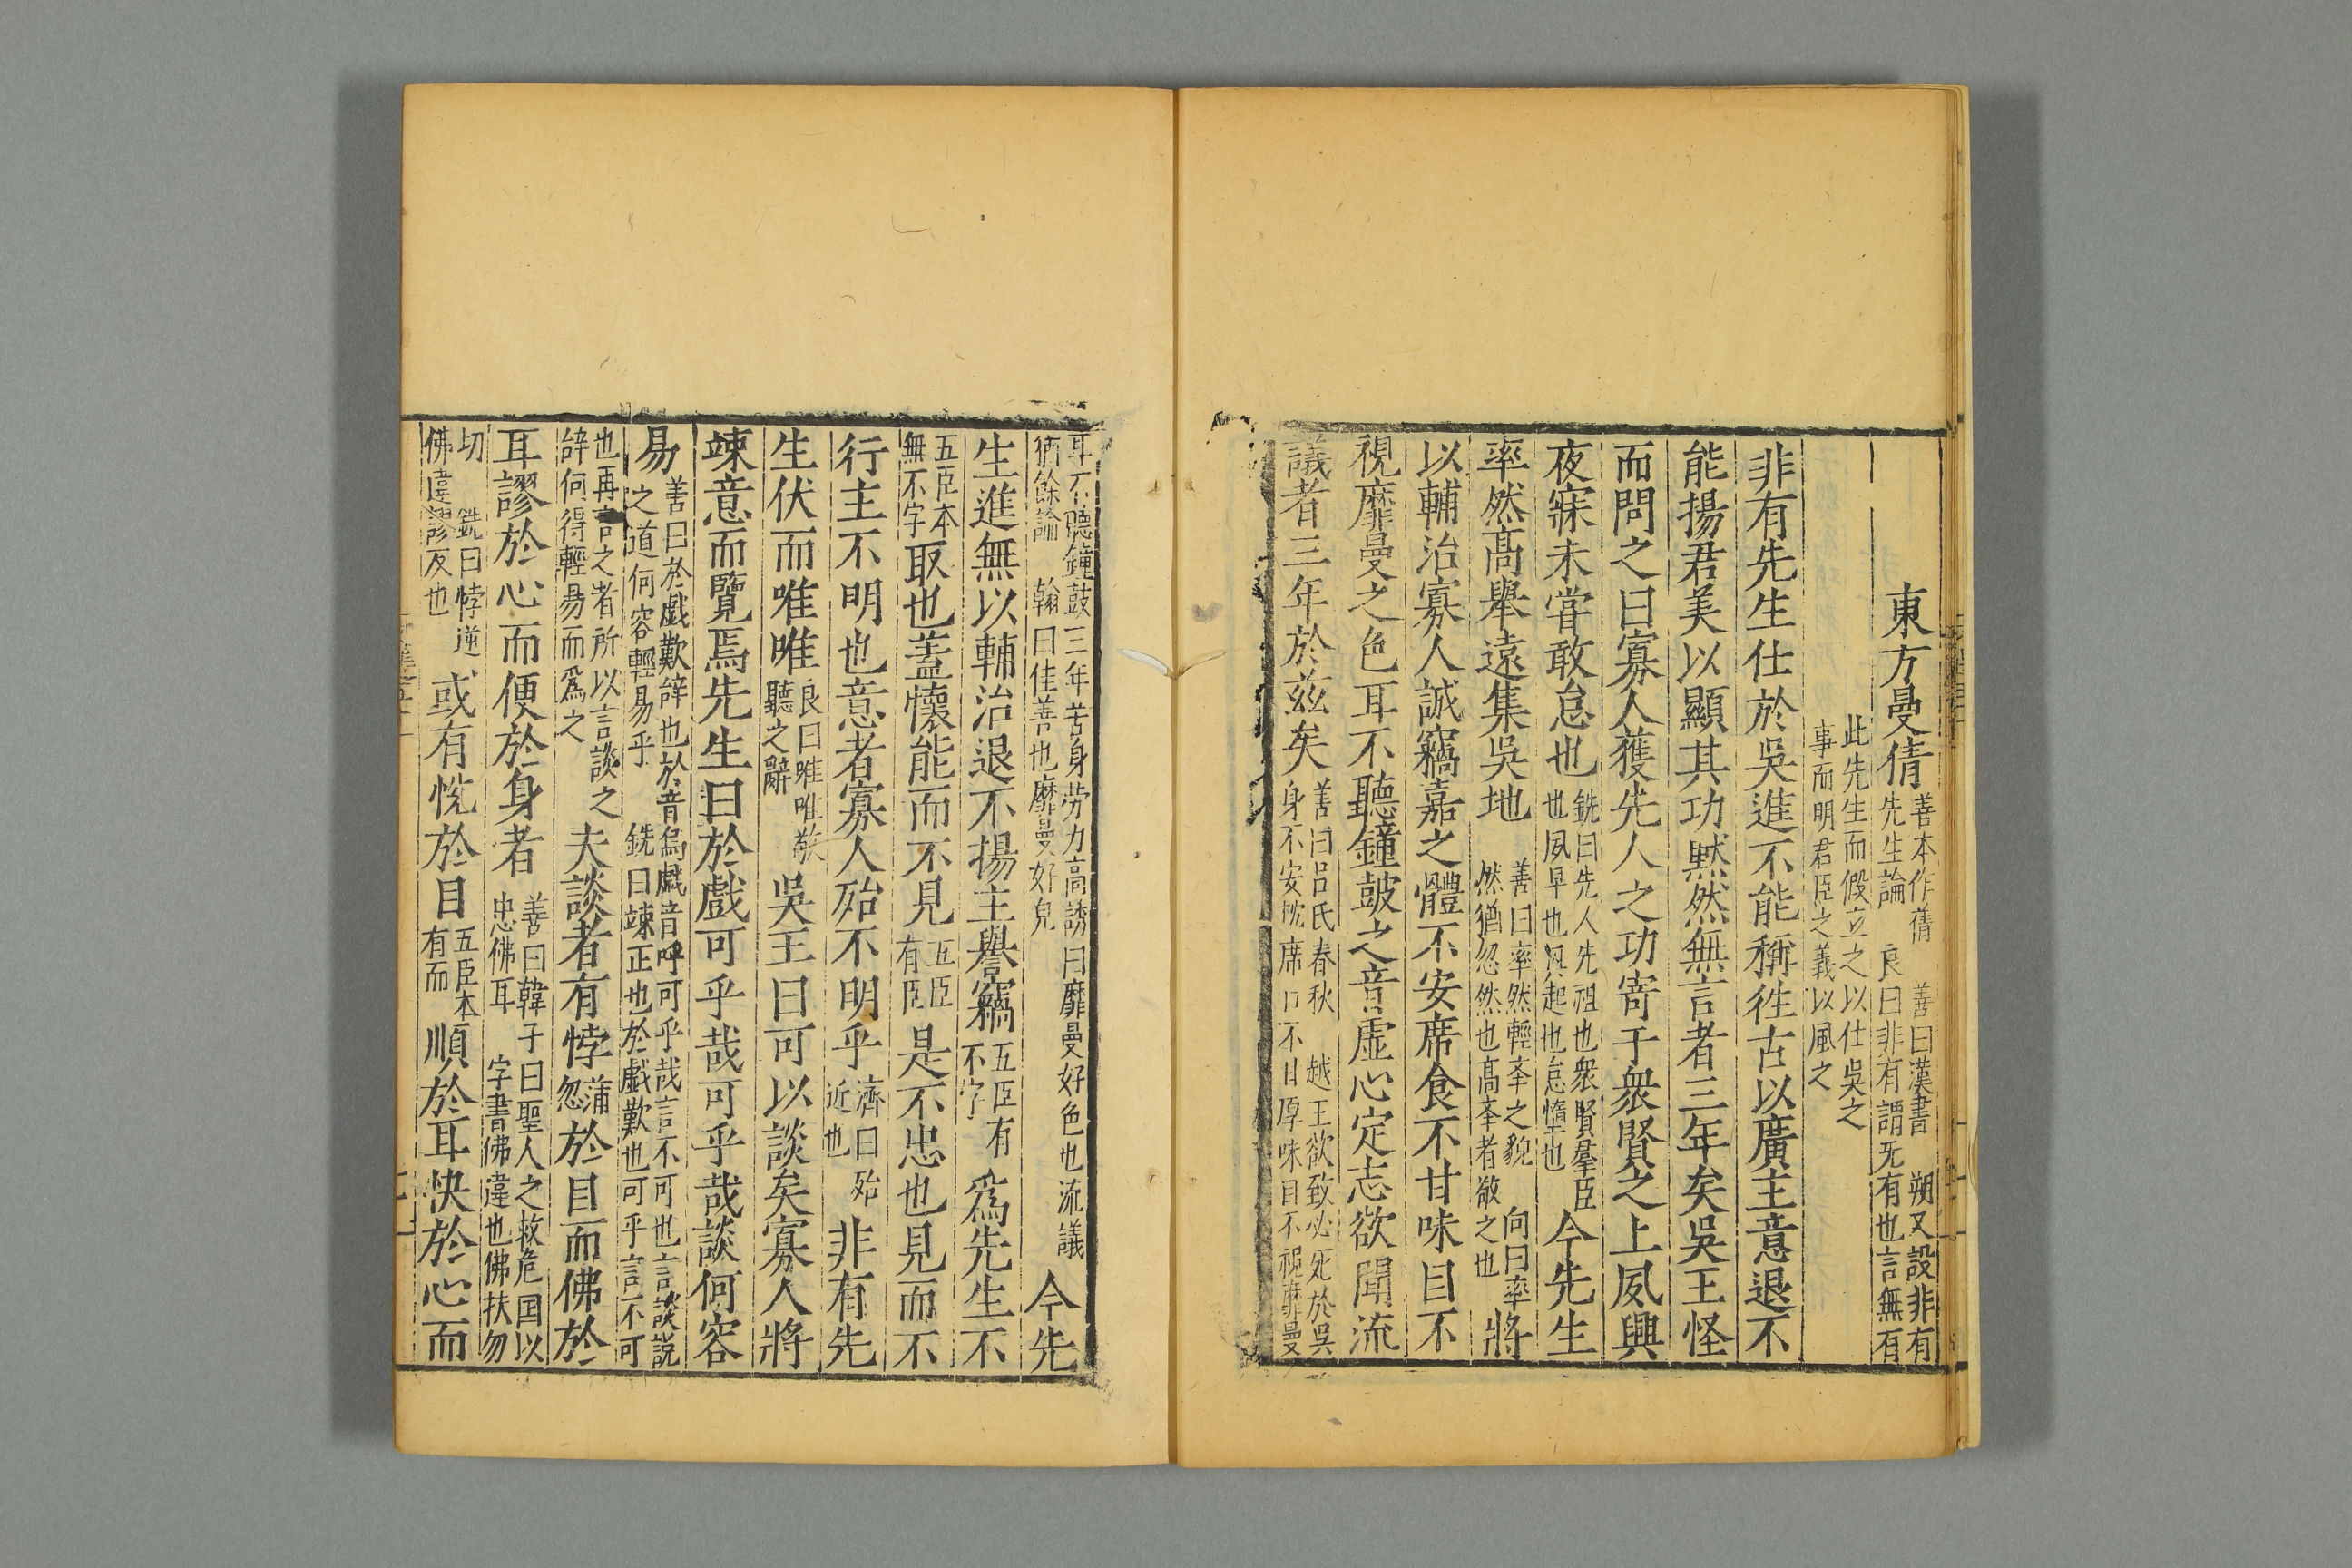 東方曼倩善本作蒨先生論 善曰漢書 朔又設非有良曰非有謂无有也言無有
此先生而假立之以仕吳之事而明君臣之義以風之
非有先生仕於吳進不能稱徃古以廣主意退不
能揚君美以顯其功黙然無言者三年矣吳王怪
而問之曰寡人獲先人之功寄于衆賢之上夙興
夜寐未甞敢怠也銑曰先人先祖也衆賢羣臣也夙早也興起也怠墯也今先生
率然髙舉遠集吳地善曰率然輕㪯之貌然猶忽然也髙㪯者 向曰率敬之也將
以輔治寡人誠竊嘉之體不安席食不甘味目不
視靡曼之色耳不聽鐘皷之音虛心定志欲聞流
議者三年於茲矣善曰呂氏春秋 越王欲致必死於吳身不安枕席口不甘厚味目不視靡曼
耳不聽鐘鼓三年苦身劳力高誘曰靡曼好色也流議猶餘論 翰曰佳善也靡曼好皃今先
生進無以輔治退不揚主譽竊五臣有不字爲先生不
五臣本無不字取也蓋懷能而不見五臣有臣是不忠也見而不
行主不明也意者寡人殆不明乎濟曰殆近也非有先
生伏而唯唯良曰唯唯敬聽之辭吳王曰可以談矣寡人將
竦意而覽焉先生曰於戲可乎哉可乎哉談何容
易善曰於戲歎辭也於音烏戲音呼可乎哉言不可也言談説之道何容輕易乎 銑曰竦正也於戲歎也可乎言不可
也再言之者所以言談之辭何得輕易而爲之夫談者有悖蒲忽於目而佛於
耳謬於心而便於身者善曰韓子曰聖人之救危国以忠佛耳 字書佛違也佛扶勿
切 銑曰悖逆佛違謬反也或有恱於目五臣本有而順於耳快於心而